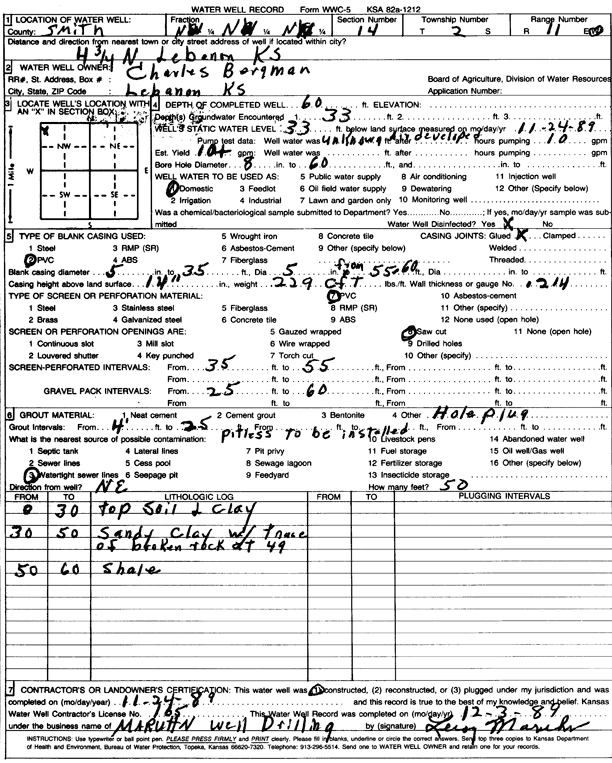 WATER WELL RECORD Form WWC-5 KSA 82a-1212
1 LOCATION OF WATER WELL: Fraction Section Number Township Number Range Number
County: Smith NW ¼ NW ¼ NW ¼ 14 T 2 S R 11 E/W
Distance and direction from nearest town or city street address of well if located within city?
4 3/4 N Lebanon KS
2 WATER WELL OWNER: Charles Bergman
RR#, St. Address, Box # : Board of Agriculture, Division of Water Resources
City, State, ZIP Code : Lebanon KS Application Number:
3 LOCATE WELL'S LOCATION WITH AN "X" IN SECTION BOX:
N
NW NE
W E
SW SE
S
1 Mile
4 DEPTH OF COMPLETED WELL 60 ft. ELEVATION:
Depth(s) Groundwater Encountered 1. 33 ft. 2. ft. 3. ft.
WELL'S STATIC WATER LEVEL 33 ft. below land surface measured on mo/day/yr 11-24-89
Pump test data: Well water was unknown ft. after Air developed hours pumping 10 gpm
Est. Yield 10+ gpm Well water was ft. after hours pumping gpm
Bore Hole Diameter 8 in. to 60 ft., and in. to ft.
WELL WATER TO BE USED AS: 5 Public water supply 8 Air conditioning 11 Injection well
1 Domestic 3 Feedlot 6 Oil field water supply 9 Dewatering 12 Other (Specify below)
2 Irrigation 4 Industrial 7 Lawn and garden only 10 Monitoring well
Was a chemical/bacteriological sample submitted to Department? Yes No ; If yes, mo/day/yr sample was submitted Water Well Disinfected? Yes X No
5 TYPE OF BLANK CASING USED: 5 Wrought iron 8 Concrete tile CASING JOINTS: Glued X Clamped
1 Steel 3 RMP (SR) 6 Asbestos-Cement 9 Other (specify below) Welded
2 PVC 4 ABS 7 Fiberglass Threaded
Blank casing diameter 5 in. to 35 ft., Dia 5 in. from to 55-60 ft., Dia in. to ft.
Casing height above land surface 14" in., weight 229 CFT lbs./ft. Wall thickness or gauge No. .214
TYPE OF SCREEN OR PERFORATION MATERIAL: 7 PVC 10 Asbestos-cement
1 Steel 3 Stainless steel 5 Fiberglass 8 RMP (SR) 11 Other (specify)
2 Brass 4 Galvanized steel 6 Concrete tile 9 ABS 12 None used (open hole)
SCREEN OR PERFORATION OPENINGS ARE: 5 Gauzed wrapped 8 Saw cut 11 None (open hole)
1 Continuous slot 3 Mill slot 6 Wire wrapped 9 Drilled holes
2 Louvered shutter 4 Key punched 7 Torch cut 10 Other (specify)
SCREEN-PERFORATED INTERVALS: From 35 ft. to 55 ft., From ft. to ft.
From ft. to ft., From ft. to ft.
GRAVEL PACK INTERVALS: From 25 ft. to 60 ft., From ft. to ft.
From ft. to ft., From ft. to ft.
6 GROUT MATERIAL: 1 Neat cement 2 Cement grout 3 Bentonite 4 Other Hole plug
Grout Intervals: From 4' ft. to 25 ft., From pitless to be installed
What is the nearest source of possible contamination: 10 Livestock pens 14 Abandoned water well
1 Septic tank 4 Lateral lines 7 Pit privy 11 Fuel storage 15 Oil well/Gas well
2 Sewer lines 5 Cess pool 8 Sewage lagoon 12 Fertilizer storage 16 Other (specify below)
3 Watertight sewer lines 6 Seepage pit 9 Feedyard 13 Insecticide storage
Direction from well? NE How many feet? 50
FROM TO LITHOLOGIC LOG FROM TO PLUGGING INTERVALS
0 30 top soil & clay
30 50 Sandy Clay w/ trace
of broken rock at 49
50 60 Shale
7 CONTRACTOR'S OR LANDOWNER'S CERTIFICATION: This water well was (1) constructed, (2) reconstructed, or (3) plugged under my jurisdiction and was
completed on (mo/day/year) 11-24-89 and this record is true to the best of my knowledge and belief. Kansas
Water Well Contractor's License No. 185 This Water Well Record was completed on (mo/day/yr) 12-3-89
under the business name of Well Drilling by (signature)
INSTRUCTIONS: Use typewriter or ball point pen. PLEASE PRESS FIRMLY and PRINT clearly. Please fill in blanks, underline or circle the correct answers. Send top three copies to Kansas Department
of Health and Environment, Bureau of Water Protection, Topeka, Kansas 66620-7320. Telephone: 913-296-5514. Send one to WATER WELL OWNER and retain one for your records.